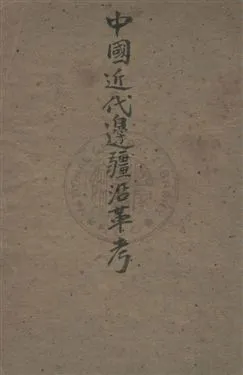 中國近代邊疆沿革考